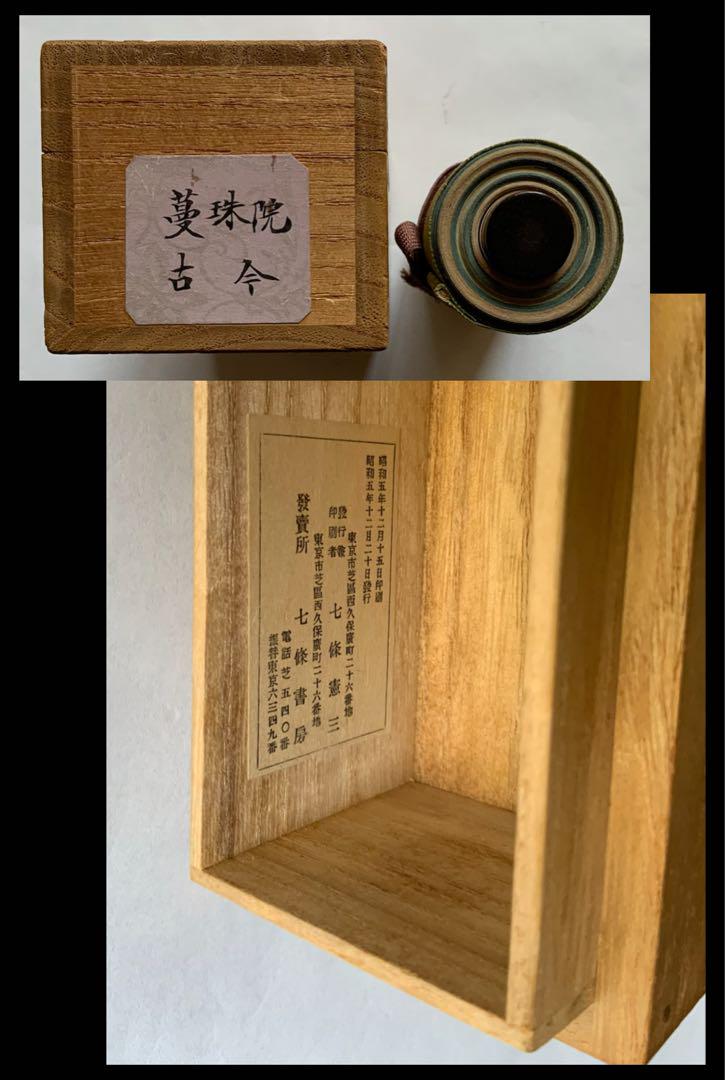 蔓珠院
古今
昭和五年十二月十五日印刷
昭和五年十二月二十日發行
東京市芝區西久保廣町二十六番地
發行兼印刷者 七條憲三
東京市芝區西久保廣町二十六番地
發賣所 七條書房
電話芝五四〇番
振替東京六三四九番